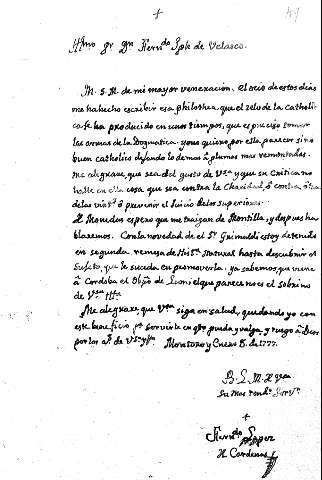 +
47
Illmo Sr Dn Ferndo Jph de Velasco.
M. S. M. de mi mayor veneracion. El ocio de estos dias
me ha hecho escribir esa Philothea, que el zelo de la Catholi-
ca fe ha producido en unos tiempos, que es preciso tomar
las armas de la Dogmatica. Yo no quiero por ella parecer sino
buen Catholico dejando lo demas à plumas mas remontadas.
Me alegrare, que sea del gusto de Vsa y que su critica no
halle en ella cosa que sea contra la Charidad, ò contra otra
de las virts ò prevenir el Juicio de los superiores.
El Monedas espero que me traigan de Montilla, y despues ha-
blaremos. Con la novedad de el Sr Grimaldi estoy detenido
en segunda remesa de Hista natural hasta descubrir el
Sujeto, que le suceda en promoverla. Ya sabemos, que viene
à Cordoba el Obpo de
que parece no es el sobrino
de Vsa Illa.
Me alegrare, que Vsa siga en salud, quedando yo con
este beneficio pa servirle en qto pueda y valga, y ruego à Dios
por los as de Vsa
Montoro y Enero 8. de 1777.
B. L. M. de Vsa
su mas rendo Servr
+
Ferndo Lopez
de Cardenas